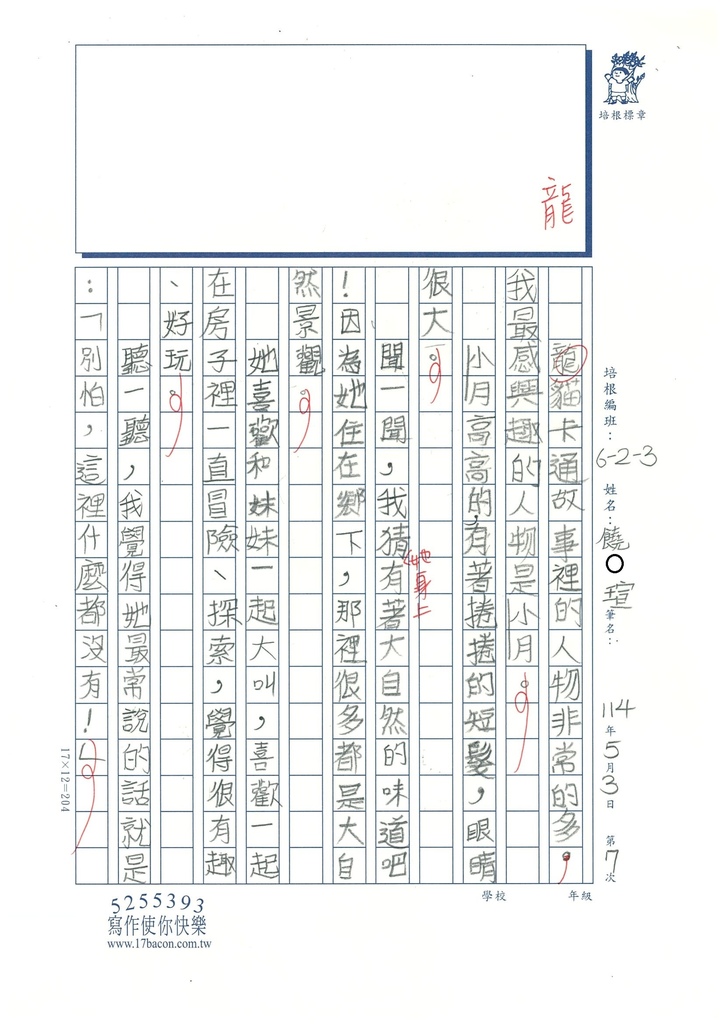 培根標章
龍
培根編班：6-2-3 姓名：饒○瑄 筆名： 114年5月3日 第7次
龍貓卡通故事裡的人物非常的多，
我最感興趣的人物是小月。
小月高高的，有著捲捲的短髮，眼睛
很大。
聞一聞，我猜她身上有著大自然的味道吧
！因為她住在鄉下，那裡很多都是大自
然景觀。
她喜歡和妹妹一起大叫，喜歡一起
在房子裡一直冒險、探索，覺得很有趣
、好玩。
聽一聽，我覺得她最常說的話就是
：「別怕，這裡什麼都沒有！」
17×12=204
學校 年級
5255393
寫作使你快樂
www.17bacon.com.tw